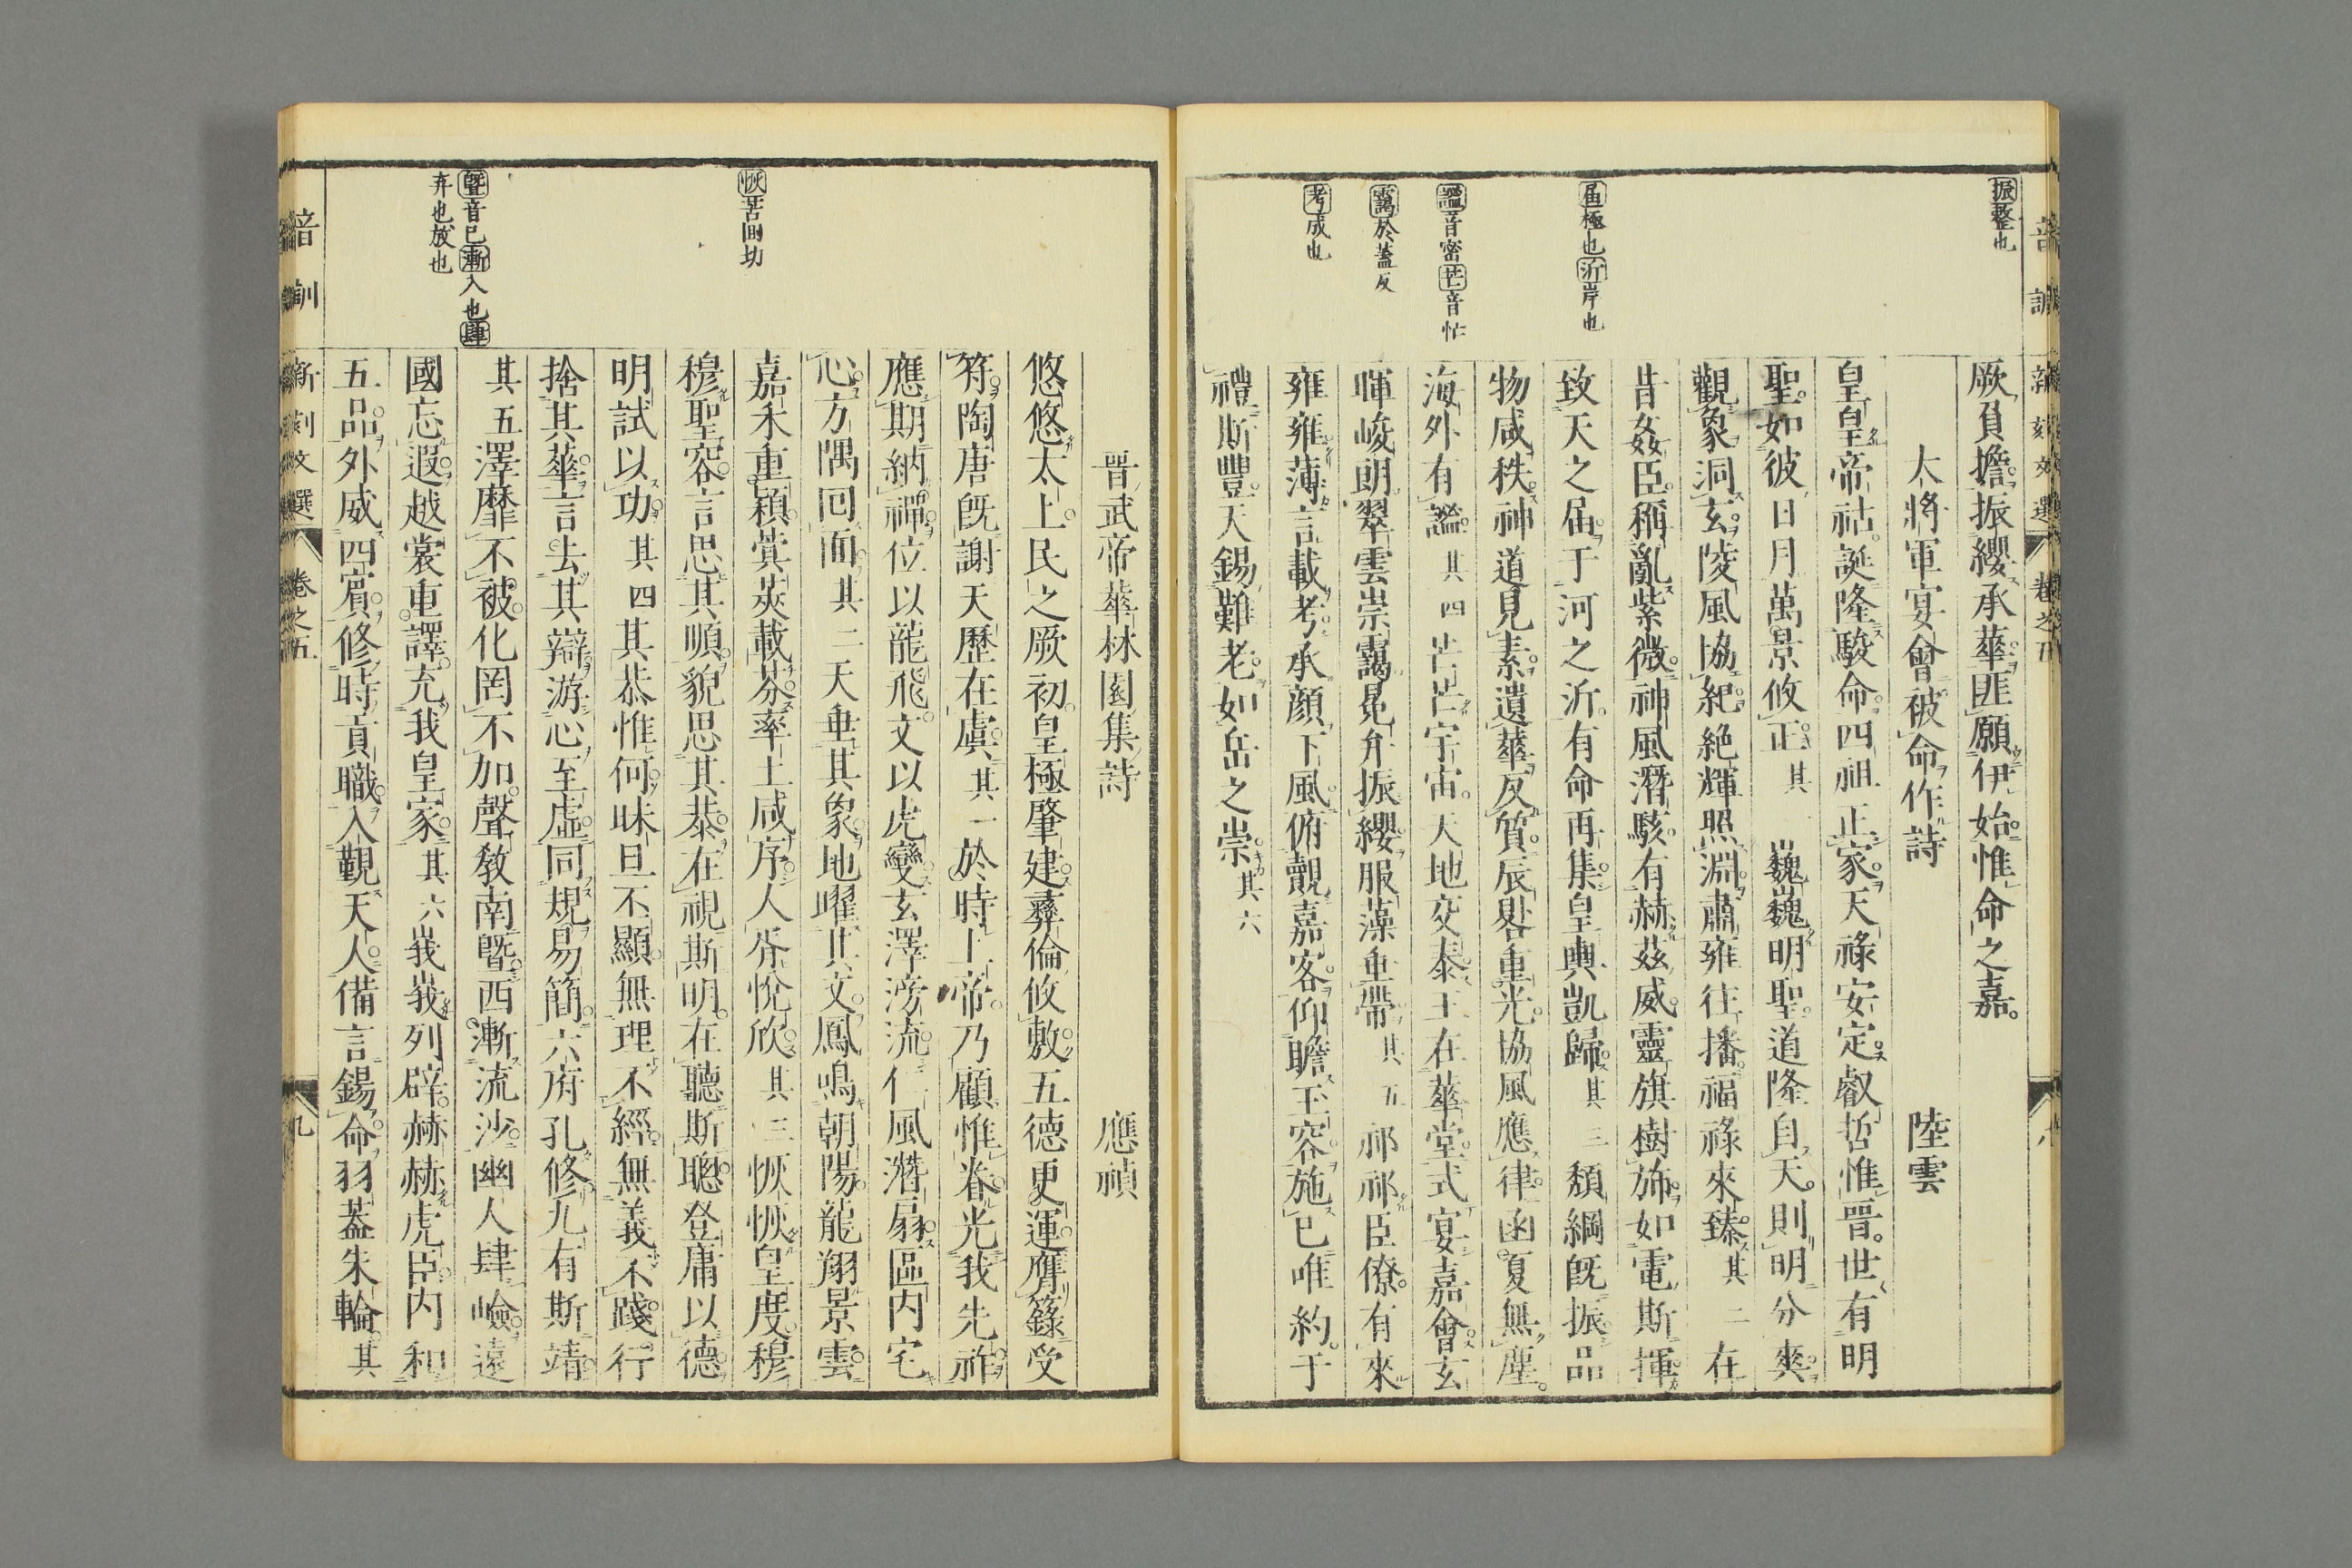 振整也
厥負擔振纓承華匪願伊始惟命之嘉
太將軍宴會被命作詩 陸雲
皇皇帝祜誕隆駿命四祖正家天祿安定叡哲惟晉世有明
聖如彼日月萬景攸正其一巍巍明聖道隆自天則明分爽
觀象洞玄陵風協紀絶輝照淵肅雍往播福祿來臻其二在
昔姦臣稱亂紫微神風潛駭有赫茲威靈旗樹斾如電斯揮
屆極也沂岸也
致天之届于河之沂有命再集皇輿凱歸其三頽綱既振品
物咸秩神道見素遺華反質辰晷重光協風應律函夏無塵
謐音密芒音忙
海外有謐其四芒芒宇宙天地交泰王在華堂式宴嘉會玄
靄於蓋反
暉峻朗翠雲崇靄冕弁振纓服藻垂帶其五祁祁臣僚有來
考成也
雍雍薄言載考承顔下風俯覿嘉客仰瞻玉容施已唯約于
禮斯豐天錫難老如岳之崇其六
晉武帝華林園集詩 應禎
悠悠太上民之厥初皇極肇建彞倫攸敷五德更運膺籙受
符陶唐既謝天歷在虞其一於時上帝乃顧惟眷光我先祚
應期納禪位以龍飛文以虎變玄澤滂流仁風潛扇區内宅
心方隅回面其二天垂其象地曜其文鳳鳴朝陽龍翔景雲
恢苦回切
嘉禾重穎蓂莢載芬率土咸序人胥悅欣其三恢恢皇度穆
穆聖容言思其順貌思其恭在視斯明在聽斯聰登庸以德
明試以功其四其恭惟何昧旦不顯無理不經無義不踐行
捨其華言去其辯游心至虚同規易簡六府孔修九有斯靖
曁音已漸入也肆
弃也放也
其五澤靡不被化罔不加聲敎南曁西漸流沙幽人肆嶮遠
國忘遐越裳重譯充我皇家其六峩峩列辟赫赫虎臣内和
五品外威四賓修時貢職入覲天人備言錫命羽葢朱輪其
音訓 新刻文選 卷之五 九